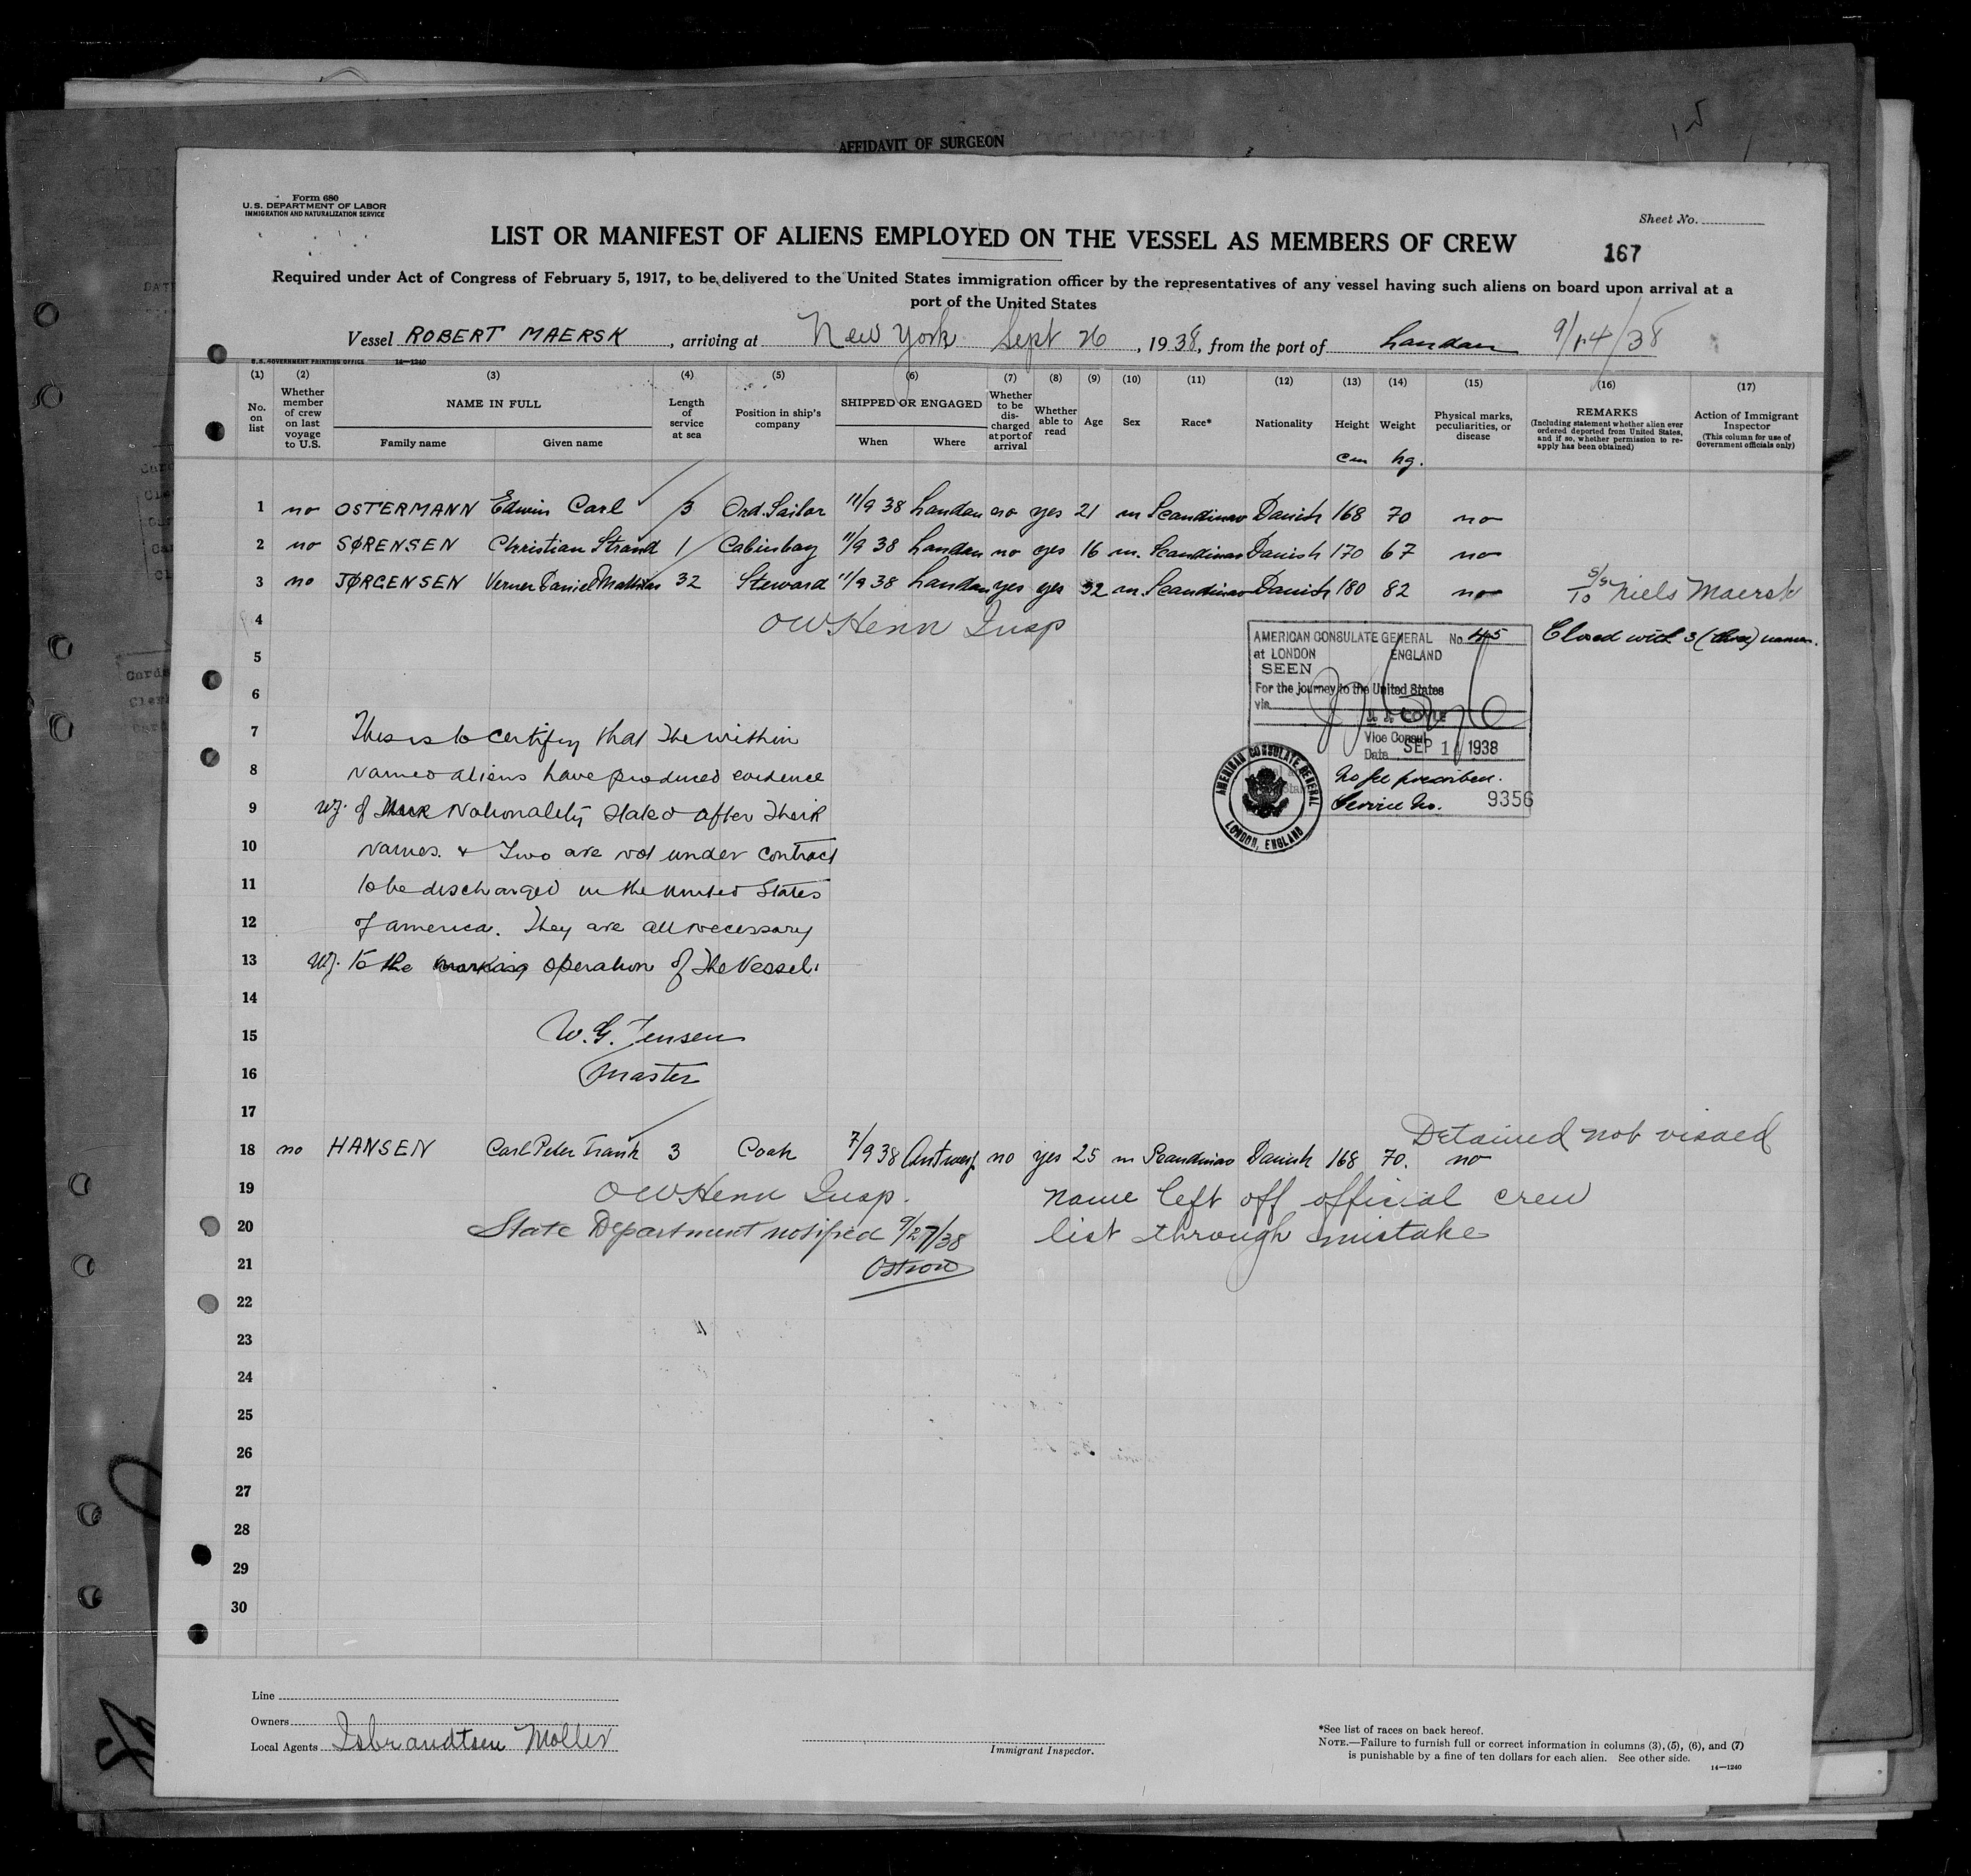 AFFIDAVIT OF SURGEON
Form 680
U. S. DEPARTMENT OF LABOR
IMMIGRATION AND NATURALIZATION SERVICE
Sheet No.
LIST OR MANIFEST OF ALIENS EMPLOYED ON THE VESSEL AS MEMBERS OF CREW
167
Required under Act of Congress of February 5, 1917, to be delivered to the United States immigration officer by the representatives of any vessel having such aliens on board upon arrival at a
port of the United States
Vessel ROBERT MAERSK, arriving at New York Sept 26, 1938, from the port of London 9/14/38
U. S. GOVERNMENT PRINTING OFFICE 14—1240
(1) (2) (3) (4) (5) (6) (7) (8) (9) (10) (11) (12) (13) (14) (15) (16) (17)
No. on list
Whether member of crew on last voyage to U.S.
NAME IN FULL
Family name Given name
Length of service at sea
Position in ship's company
SHIPPED OR ENGAGED
When Where
Whether to be discharged at port of arrival
Whether able to read
Age
Sex
Race*
Nationality
Height
cm
Weight
kg.
Physical marks, peculiarities, or disease
REMARKS
(Including statement whether alien ever ordered deported from United States, and if so, whether permission to reapply has been obtained)
Action of Immigrant Inspector
(This column for use of Government officials only)
1 no OSTERMANN Edwin Carl 3 Ord. Sailor 11/9 38 London no yes 21 m Scandinav Danish 168 70 no
2 no SØRENSEN Christian Strand 1 Cabinboy 11/9 38 London no yes 16 m. Scandinav Danish 170 67 no
3 no JØRGENSEN Verner Daniel 32 Steward 11/9 38 London yes yes 32 m. Scandinav Danish 180 82 no To S/S Niels Maersk
4 OW Henn Insp Closed with 3 (three) names.
AMERICAN CONSULATE GENERAL No. 45
at LONDON ENGLAND
SEEN
For the journey to the United States
via
J. J. COYLE
Vice Consul
Date SEP 14 1938
No fee prescribed.
Service No. 9356
AMERICAN CONSULATE GENERAL
LONDON, ENGLAND
5
6
7 This is to certify that the within
8 named aliens have produced evidence
9 WJ. of their Nationality stated after their
10 names. & Two are not under contract
11 to be discharged in the United States
12 of america. They are all necessary
13 WJ. to the working operation of the Vessel.
14
15 W. G. Jensen
16 Master
17
Detained not visaed
18 no HANSEN Carl Peter Frank 3 Cook 7/9 38 Antwerp no yes 25 m Scandinav Danish 168 70. no
19 OW Henn Insp. name left off official crew
20 State Department notified 9/27/38 list through mistake
21 Ostrow
22
23
24
25
26
27
28
29
30
Line
Owners
Local Agents Isbrandtsen Moller
Immigrant Inspector.
*See list of races on back hereof.
NOTE.—Failure to furnish full or correct information in columns (3), (5), (6), and (7)
is punishable by a fine of ten dollars for each alien. See other side.
14—1240